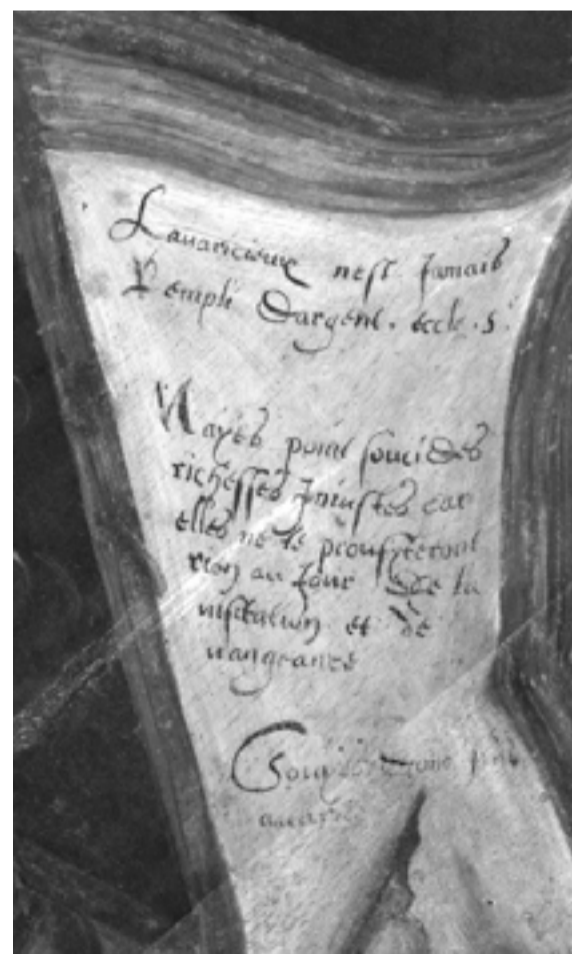 Lavaricieux nest Jamais
Rempli dargent. eccle. 5.
Nayes point souci des
richesses Iniustes car
elles ne te proufiteront
rien au Jour de la
uisitation et de
uangeance